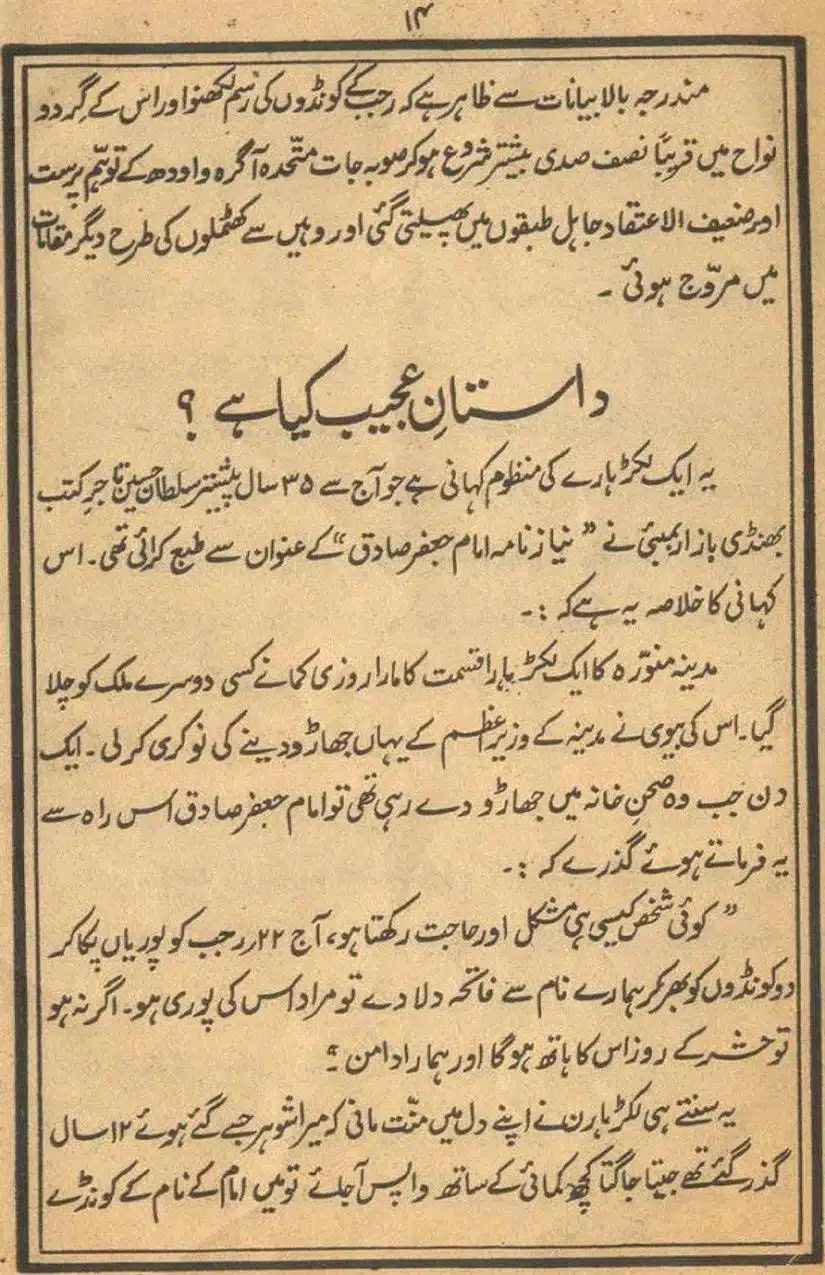 ۱۴
مندرجہ بالا بیانات سے ظاہر ہے کہ رجب کے کونڈوں کی رسم لکھنؤ اور اس کے گردو
نواح میں قریباً نصف صدی بیشتر شروع ہو کر صوبہ جات متّحدہ آگرہ و اودھ کے توہّم پرست
اور ضعیف الاعتقاد جاہل طبقوں میں پھیلتی گئی اور وہیں سے کھٹملوں کی طرح دیگر مقامات
میں مروّج ہوئی ۔
داستانِ عجیب کیا ہے ؟
یہ ایک لکڑہارے کی منظوم کہانی ہے جو آج سے ۳۵ سال پیشتر سلطان حسین تاجر کتب
بھنڈی بازار بمبئی نے ”نیاز نامہ امام جعفر صادق“ کے عنوان سے طبع کرائی تھی۔ اس
کہانی کا خلاصہ یہ ہے کہ :۔
مدینہ منوّرہ کا ایک لکڑہارا قسمت کا مارا روزی کمانے کسی دوسرے ملک کو چلا
گیا۔ اس کی بیوی نے مدینہ کے وزیر اعظم کے یہاں جھاڑو دینے کی نوکری کر لی۔ ایک
دن جب وہ صحنِ خانہ میں جھاڑو دے رہی تھی تو امام جعفر صادق اس راہ سے
یہ فرماتے ہوئے گذرے کہ :۔
”کوئی شخص کیسی ہی مشکل اور حاجت رکھتا ہو، آج ۲۲؍ رجب کو پوریاں پکا کر
دو کونڈوں کو بھر کر ہمارے نام سے فاتحہ دلا دے تو مراد اس کی پوری ہو۔ اگر نہ ہو
تو حشر کے روز اس کا ہاتھ ہوگا اور ہمارا دامن ؟
یہ سنتے ہی لکڑہارن نے اپنے دل میں منّت مانی کہ میرا شوہر جسے گئے ہوئے ۱۲ سال
گذر گئے تھے جیتا جاگتا کچھ کمائی کے ساتھ واپس آ جائے تو میں امام کے نام کے کونڈے